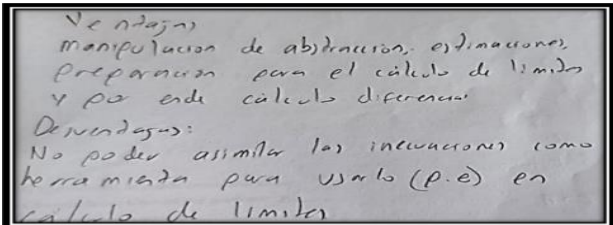 Ventajas
manipulacion de abstraccion, estimaciones,
preparacion para el cálculo de limites
y por ende cálculo diferencial
Desventajas:
No poder asimilar las inecuaciones como
herramienta para usarlo (p.e) en
calculo de limites